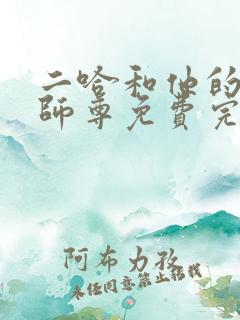 二哈和他的
師尊免費完
阿布力孜
未经同意禁止搭载